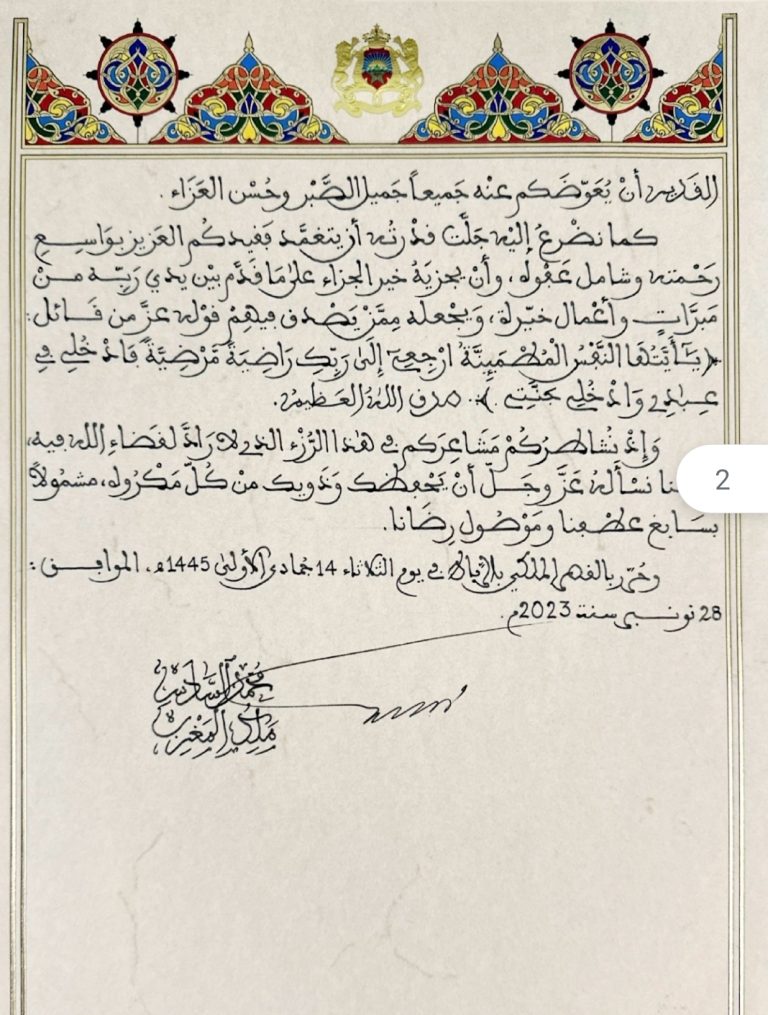 القدير أنْ يُعَوِّضَكم عنْه جَميعاً جَميلَ الصَّبْر وحُسْن العَزَاء.
كما نضْرعُ إليْه جَلَّتْ قدْرتُه أن يتغمَّد بَفقيدكُم العَزيز بوَاسِع
رَحْمته وشامل عَفْوه، وأنْ يجزيَهُ خير الجزاء على مَا قدَّم بيْن يديْ رَبِّه منْ
مَبَرَّاتٍ وأعْمال خيّرة، ويَجْعله ممَّنْ يَصْدق فيهمْ قوْله عزَّ من قَائل:
﴿يَـٰٓأَيَّتُهَا النَّفْسُ الْمُطْمَئِنَّةُ ارْجِعِي إِلَىٰ رَبِّكِ رَاضِيَةً مَّرْضِيَّةً فَادْخُلِي فِي
عِبَادِي وَادْخُلِي جَنَّتِي﴾. صدق اللهُ العَظيمُ.
وَإِذْ نُشاطرُكُمْ مَشَاعرَكم في هٰذا الرُّزْء الذي لا رَادَّ لقضَاءِ الله فيه،
نسْألهُ عَزَّ وجَلّ أنْ يَحْفظك وَذَويك منْ كُلّ مَكْرُوه، مشمُولاً
بسَابغ عطْفنا ومَوْصُول رِضَانا.
وحُرِّر بالقصر الملكي بالرباط في يوم الثلاثاء 14 جمادى الأولى 1445هـ، الموافـق:
28 نونبر سنة 2023م.
محمد السادس
ملك المغرب
2